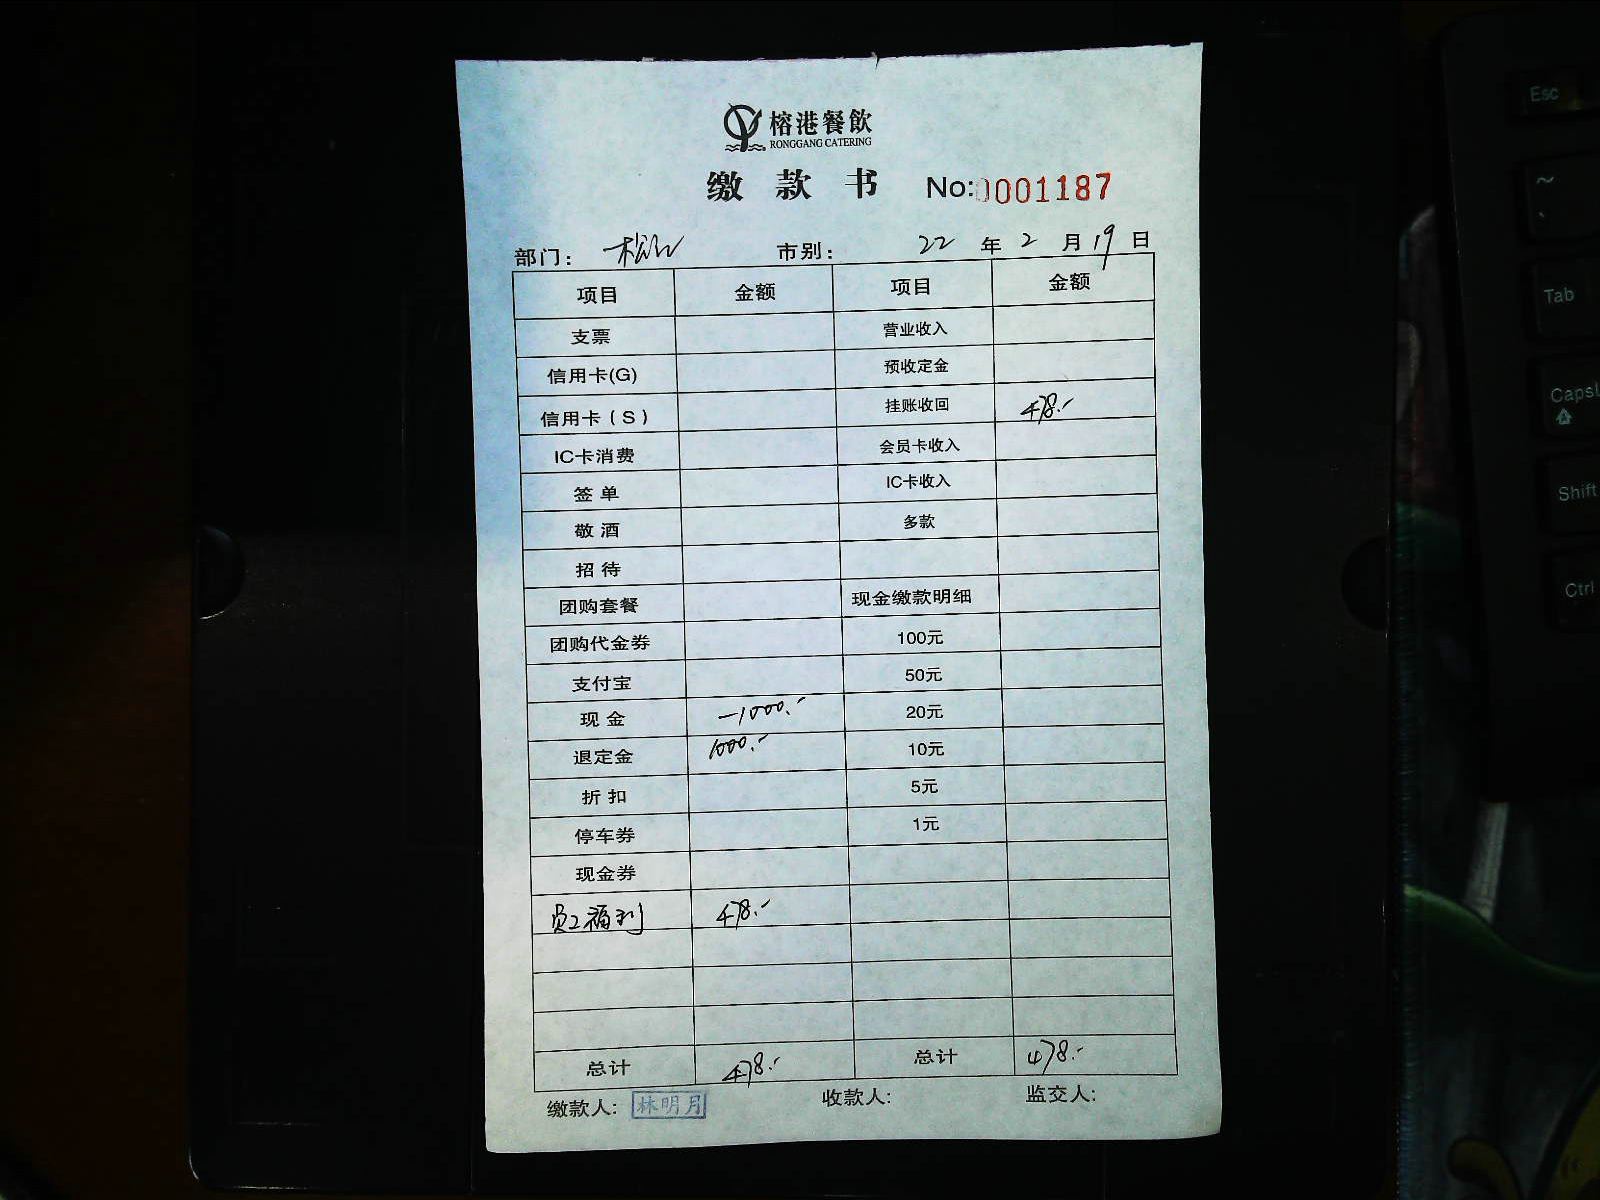 榕港餐飲
RONGGANG CATERING
缴款书 No:0001187
部门：松山 市别： 22 年 2 月 19 日
项目 金额 项目 金额
支票 营业收入
信用卡(G) 预收定金
信用卡（S） 挂账收回 478.-
IC卡消费 会员卡收入
签单 IC卡收入
敬酒 多款
招待
团购套餐 现金缴款明细
团购代金券 100元
支付宝 50元
现金 -1000.- 20元
退定金 1000.- 10元
折扣 5元
停车券 1元
现金券
员工福利 478.-
总计 478.- 总计 478.-
缴款人: 林明月 收款人: 监交人:
Esc
~
Tab
Caps
Shift
Ctrl